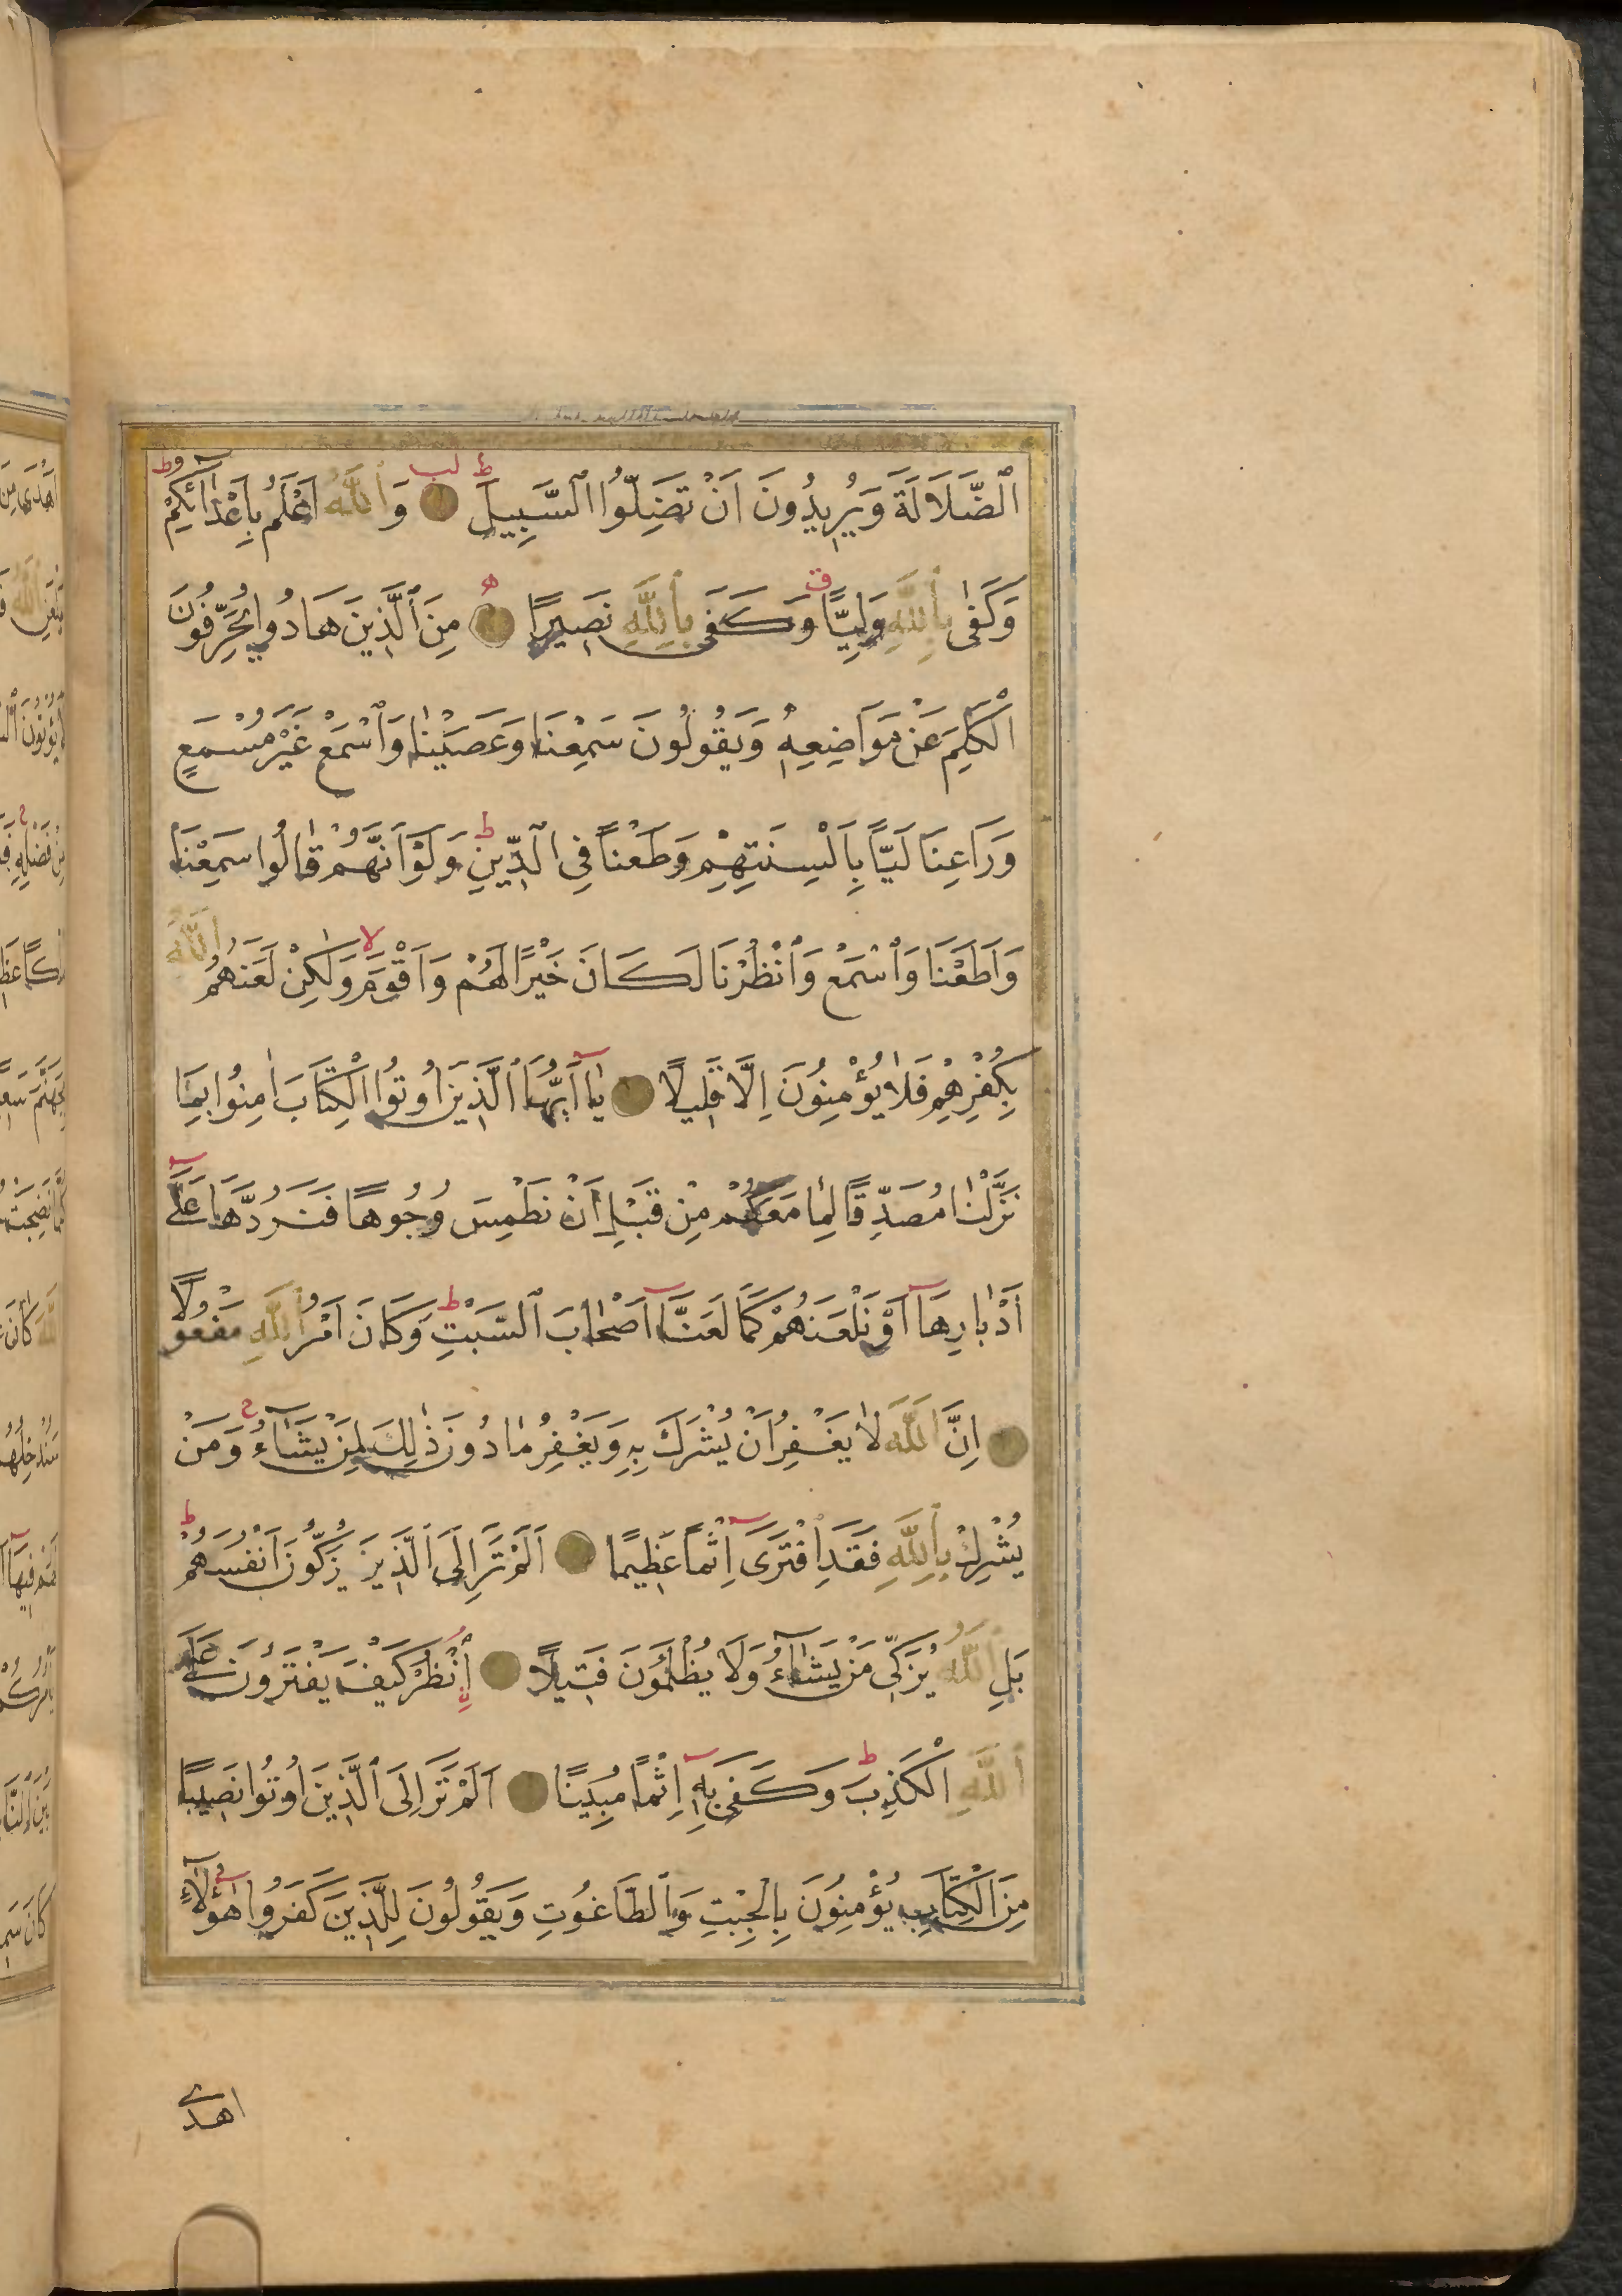 اَلضَّلَالَةَ وَيُرِيدُونَ اَنْ تَضِلُّوا السَّبِيلَ وَاللّٰهُ اَعْلَمُ بِاَعْدَائِكُمْ
وَكَفٰى بِاللّٰهِ وَلِيًّا وَكَفٰى بِاللّٰهِ نَصِيرًا مِنَ الَّذِينَ هَادُوا يُحَرِّفُونَ
الْكَلِمَ عَنْ مَوَاضِعِهِ وَيَقُولُونَ سَمِعْنَا وَعَصَيْنَا وَاسْمَعْ غَيْرَ مُسْمَعٍ
وَرَاعِنَا لَيًّا بِاَلْسِنَتِهِمْ وَطَعْنًا فِي الدِّينِ وَلَوْ اَنَّهُمْ قَالُوا سَمِعْنَا
وَاَطَعْنَا وَاسْمَعْ وَانْظُرْنَا لَكَانَ خَيْرًا لَهُمْ وَاَقْوَمَ وَلٰكِنْ لَعَنَهُمُ اللّٰهُ
بِكُفْرِهِمْ فَلَا يُؤْمِنُونَ اِلَّا قَلِيلًا يَا اَيُّهَا الَّذِينَ اُوتُوا الْكِتَابَ اٰمِنُوا بِمَا
نَزَّلْنَا مُصَدِّقًا لِمَا مَعَكُمْ مِنْ قَبْلِ اَنْ نَطْمِسَ وُجُوهًا فَنَرُدَّهَا عَلٰى
اَدْبَارِهَا اَوْ نَلْعَنَهُمْ كَمَا لَعَنَّا اَصْحَابَ السَّبْتِ وَكَانَ اَمْرُ اللّٰهِ مَفْعُولًا
اِنَّ اللّٰهَ لَا يَغْفِرُ اَنْ يُشْرَكَ بِهِ وَيَغْفِرُ مَا دُونَ ذٰلِكَ لِمَنْ يَشَاءُ وَمَنْ
يُشْرِكْ بِاللّٰهِ فَقَدِ افْتَرٰى اِثْمًا عَظِيمًا اَلَمْ تَرَ اِلَى الَّذِينَ يُزَكُّونَ اَنْفُسَهُمْ
بَلِ اللّٰهُ يُزَكِّي مَنْ يَشَاءُ وَلَا يُظْلَمُونَ فَتِيلًا اُنْظُرْ كَيْفَ يَفْتَرُونَ عَلَى
اللّٰهِ الْكَذِبَ وَكَفٰى بِهِ اِثْمًا مُبِينًا اَلَمْ تَرَ اِلَى الَّذِينَ اُوتُوا نَصِيبًا
مِنَ الْكِتَابِ يُؤْمِنُونَ بِالْجِبْتِ وَالطَّاغُوتِ وَيَقُولُونَ لِلَّذِينَ كَفَرُوا هٰؤُلَاءِ
اهدى